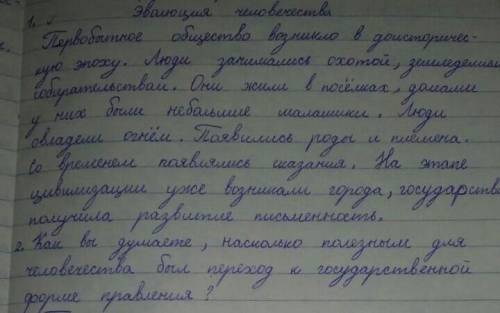 1. Эволюция человечества
Первобытное общество возникло в доисториче-
скую эпоху. Люди занимались охотой, земледелием
собирательством. Они жили в посёлках, домами
у них были небольшие малашики. Люди
овладели огнём. Появились роды и племена.
Со временем появлялись сказания. На этапе
цивилизации уже возникали города, государства
получила развитие письменность.
2. Как вы думаете, насколько полезным для
человечества был переход к государственной
форме правления?